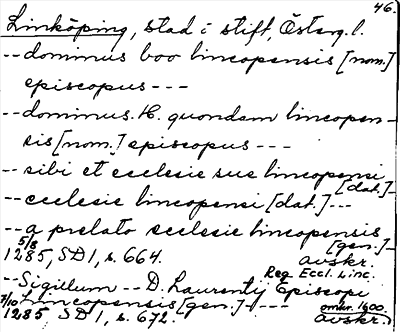 46.
Linköping, stad i stift, Österg. l.
-- dominus boo lincopensis [nom.]
episcopus ---
-- dominus. H. quondam lincopen-
sis [nom.] episcopus ---
-- sibi et ecclesie sue lincopensi
[dat.] --
-- ecclesie lincopensi [dat.] ---
-- a prelato ecclesie lincopensis
[gen.] --
5/8
1285, SD 1, s. 664. avskr.
Reg. Eccl. Linc.
-- Sigillum -- D. Laurentij Episcopi
Lincopensis [gen.] ---- omkr. 1600.
7/10
1285 SD 1, s. 672. avskr.